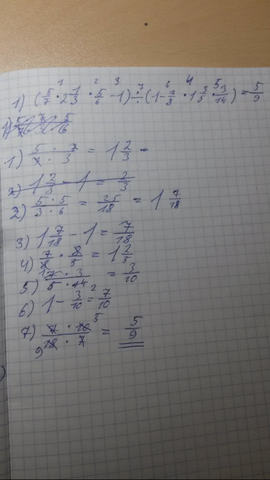 1) (5/7 · 2 1/3 · 5/6 - 1) ÷ (1 - 7/8 · 1 3/5 · 3/14) = 5/9
1) 5/7 · 7/3 = 1 2/3 -
2) 1 2/3 - 1 = 2/3
2) 5 · 5 / 3 · 6 = 25/18 = 1 7/18
3) 1 7/18 - 1 = 7/18
4) 7/8 · 8/5 = 1 2/5
5) 7 · 3 / 5 · 14 = 3/10
6) 1 - 3/10 = 7/10
7) 7 · 10 / 18 · 7 = 5/9